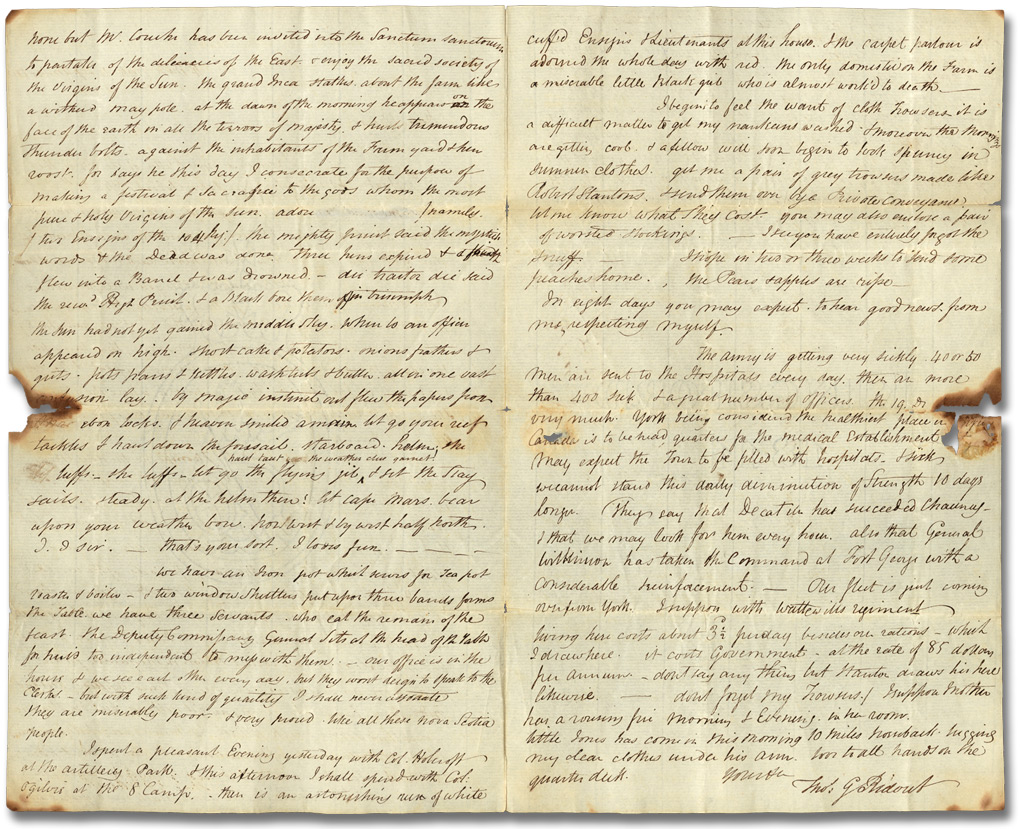 none but Mr. Couche has been invited into the Sanctum sanctorum
to partake of the delicacies of the East & enjoy the sacred society of
the Virgins of the Sun. The grand Inca stalks about the farm like
a wither'd may pole. at the dawn of the morning he appears on the
face of the earth in all the terrors of majesty. & hurls tremendous
thunder bolts. against the inhabitants of the Farm yard & hen
roost. for says he this day I consecrate for the purpose of
making a festival & sacrafice to the gods whom the most
pure & holy Virgins of the Sun. adore (namely.
(two Ensigns of the 104 Reg.) The mighty priest said the mystick
words & the Dead was done, three hens expired & a
flew into a Barrel & was drowned – die traitor die said
the revd. High Priest. & a Black bore them off in triumph
the Sun had not yet gained the middle sky. When lo an officer
appeared on high. Short cake & potatoes. onions feathers &
guts. pots pans & kettles. wash tubs & butter. all in one vast
common lay. by magic instinct out flew the papers from
ebon locks. & Heaven smiled let go your reef
tackles & hawl down the foresail starboard. helm, she
haul taut the weather clue garnet,
luffs – she luffs – let go the flying jib & set the stay
sails. steady. at the helm then! let cape Mars. bear
upon your weather bow. Nor West & by west half North.
I. I sir. — that's your sort. I love fun. — — — —
we have an Iron pot which serves for tea pot
roaster & boiler – & two window shutters put upon three barrels forms
the Table we have three servants. who eat the remains of the
feast. The Deputy Commissary General sits at the head of the table
for he is too independent to mess with them. – our office is in the
house & we see each other every day. but they wont deign to speak to the
Clerks – but with such kind of quantity I shall never associate
They are miserably poor. & very proud. like all these Nova Scotia
people.
I spent a pleasant Evening yesterday with Col: Holcroft
at the artillery Park. & this afternoon I shall spend with Col:
Ogilvie at the 8 Camp. – there is an astonishing run of white
cuffed Ensigns & Lieutenants at this house. & the carpet parlour is
adorned the whole day with red. the only domestic on the Farm is
a miserable little black girl who is almost work'd to death —
I begin to feel the want of cloth Trowsers it is
a difficult matter to get my nankeens washed. & moreover the Mornings
are getting cool. & a fellow will soon begin to look spuney in
summer clothes. get me a pair of grey trowsers made like
Robert Stantons. & send them over by a Private conveyance.
let me know what they cost you may also enclose a pair
of worsted stockings. — I see you have entirely forgot the
Snuff. — I hope in two or three weeks to send some
peaches home. , the Pears & apples are ripe –
In eight days you may expect. to hear good news. from
me, respecting myself.
The army is getting very sickly. 40 or 50
men are sent to the Hospitals every day. there are more
than 400 sick & a great number of officers. the 19. Dr
very much. York being considered the healthiest place in
Canada is to be head quarters for the medical Establishment
may expect the Town to be filled with hospitals. I think
we cannot stand this daily diminution of Strength 10 days
longer. They say that Decatur has succeeded Chauncy –
& that we may look for him every hour. also that General
Wilkinson has taken the Command at Fort George with a
considerable reinforcement. — Our fleet is just coming
over from York. I suppose with regiment
living here costs about per day besides our rations – which
I draw here. it costs Government – at the rate of 85 dollars
per annum – dont say any thing but Stanton draws his here
likewise. — dont forget my Trowsers / I suppose Mother
has a rousing fire morning & Evening. in her room.
little Jones has come in this morning 10 miles horseback lugging
my clean clothes under his arm. too to all hands on the
quarter deck. Yours &c
Thos: G Ridout